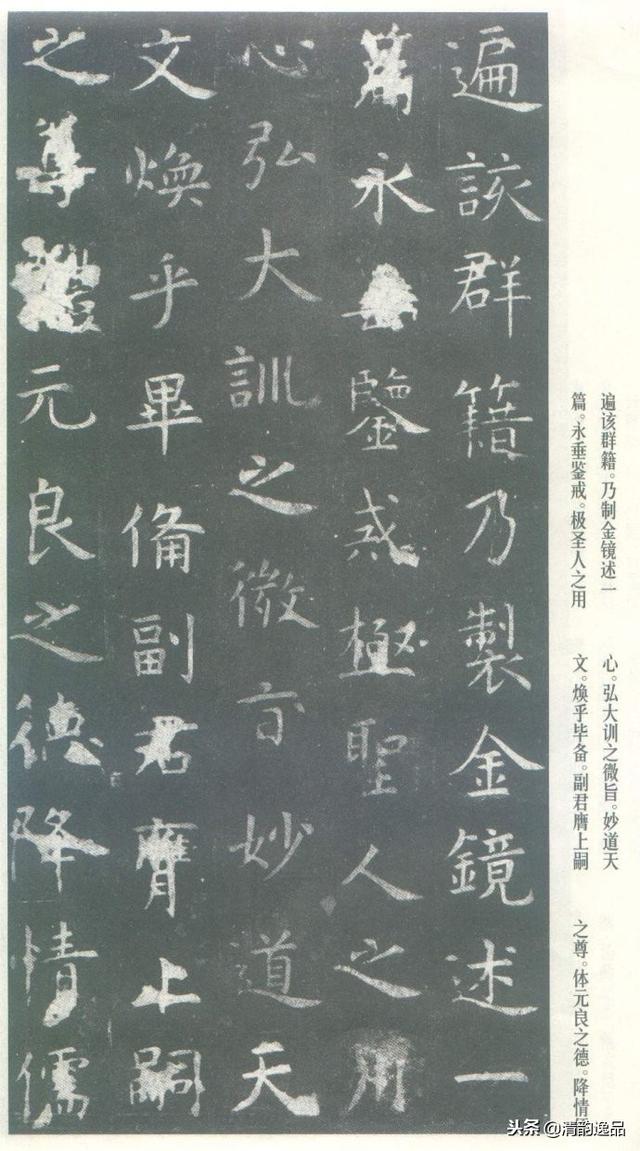 遍該群籍乃製金鏡述一
篇永垂鑒戒極聖人之用
心弘大訓之微旨妙道天
文煥乎畢備副君膺上嗣
之尊體元良之德降情儒
遍该群籍。乃制金镜述一
篇。永垂鉴戒。极圣人之用
心。弘大训之微旨。妙道天
文。焕乎毕备。副君膺上嗣
之尊。体元良之德。降情
头条 @清韵逸品